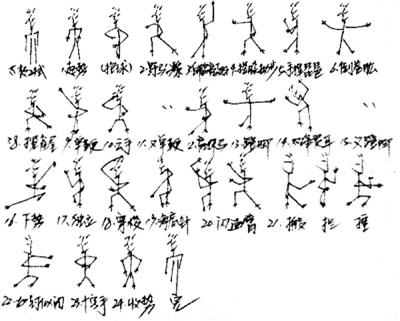 起势 (抱球) 2.野马分鬃 3.白鹤亮翅 4.搂膝拗步 5.手挥琵琶 6.倒卷肱
〃 〃
8.揽雀尾 9.单鞭 10.云手 11.又单鞭 12.高探马 13.蹬脚 14.双峰贯耳 15.又蹬脚
16.下势 17.独立 18.穿梭 19.海底针 20.闪通臂 21.搬 拦 捶
22.如封似闭 23.十字手 24.收势 完